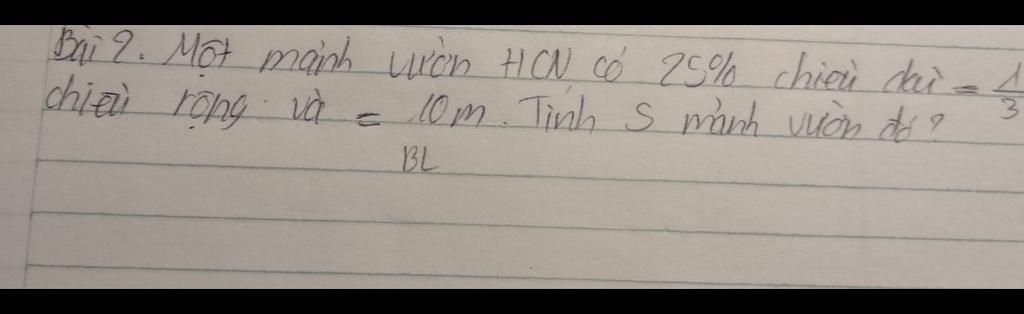 Bài 2. Một mảnh vườn HCN có 25% chiều dài = 1/3
chiều rộng và = 10m. Tính S mảnh vườn đó?
BL